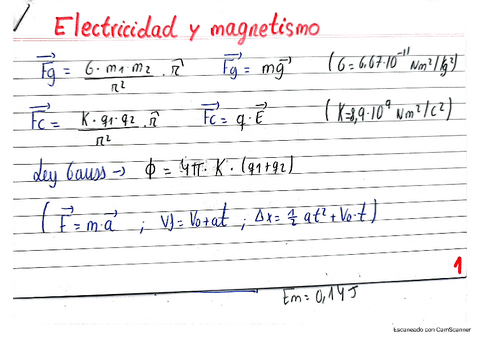 Electricidad y magnetismo
Fg = G·m1·m2/r² · r   Fg = mg   (G=6,67·10⁻¹¹ Nm²/kg²)
Fc = K·q1·q2/r² · r   Fc = q·E   (K=8,9·10⁹ Nm²/C²)
Ley Gauss → Φ = 4π·K·(q1+q2)
(F=m·a ; Vf=V0+at ; Δx=½at²+V0·t)
1
Em=0,14J
Escaneado con CamScanner